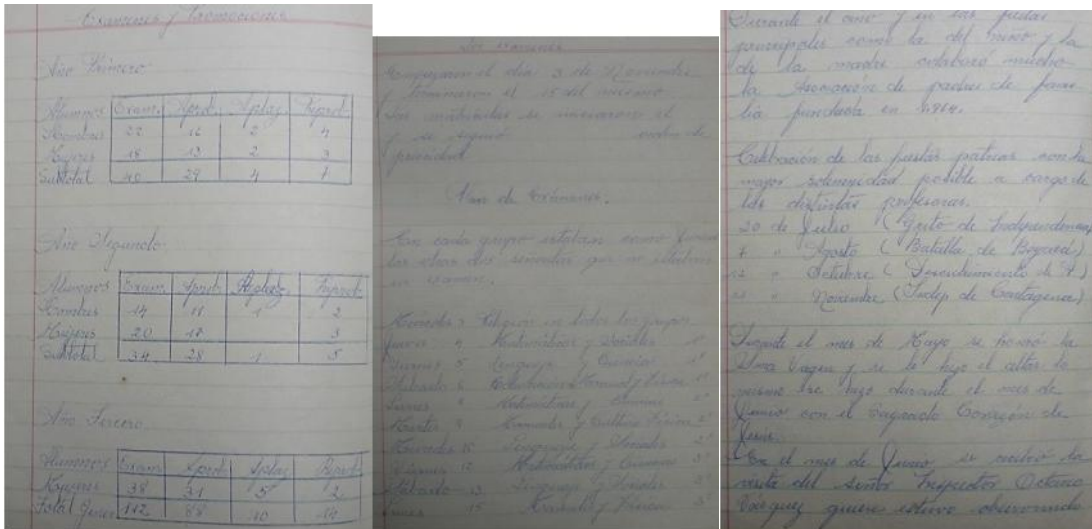 Examenes y Promociones
Año Primero
Alumnos Exam. Aprob. Aplaz. Reprob.
Hombres 22 16 2 4
Mujeres 18 13 2 3
Subtotal 40 29 4 7
Año Segundo
Alumnos Exam. Aprob. Aplaz. Reprob.
Hombres 14 11 1 2
Mujeres 20 3
Subtotal 34 28 1 5
Año Tercero
Alumnos Exam. Aprob. Aplaz. Reprob.
Mujeres 38 31 5 2
Total 112 88 10 14
Los exámenes
Empezaron el día 3 de Noviembre
y terminaron el 15 del mismo
Las matrículas se iniciaron el
y se siguió orden de
prioridad
Plan de Exámenes.
En cada grupo estaban como
las otras dos señoritas que no estaban
en examen.
Miércoles 3 Religión en todos los grupos
Jueves 4 Matemáticas y Sociales 1º
Viernes 5 Lenguaje y Ciencias 1º
Sábado 6 y Física 1º
Lunes Matemáticas y Ciencias 2º
Martes 9 Manuales y Cultura Física 2º
Miércoles 10 Lenguaje y Sociales 2º
Viernes 12 Matemáticas y Ciencias 3º
Sábado 13 Lenguaje y Sociales 3º
Lunes 15 Manuales y Física 3º
Durante el año y en las fiestas
principales como la del niño y la
de la madre colaboró mucho
la Asociación de padres de fami
lia fundada en 1964.
Celebración de las fiestas patrias con la
mayor solemnidad posible a cargo de
las distintas profesoras.
20 de Julio (Grito de Independencia)
7 " Agosto (Batalla de Boyacá)
12 " Octubre (Descubrimiento de A)
" Noviembre (Indep de Cartagena)
Durante el mes de Mayo se honró la
Sma Virgen y se le hizo el altar lo
mismo se hizo durante el mes de
Junio con el Sagrado Corazón de
Jesús.
En el mes de Junio se recibió la
visita del señor Inspector Octavio
Vásquez quien estuvo observando